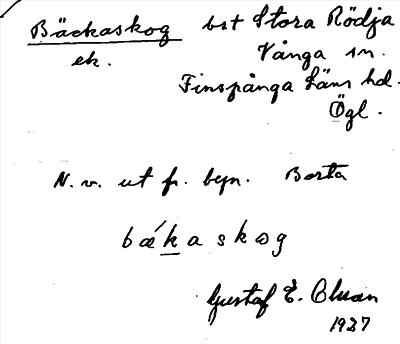 Bäckaskog bst Stora Rödja
ek. Vånga sn.
Finspånga Läns hd.
Ögl.
N. v. ut fr. byn. Borta
bǽkaskog
Gustaf E. Olsson
1927